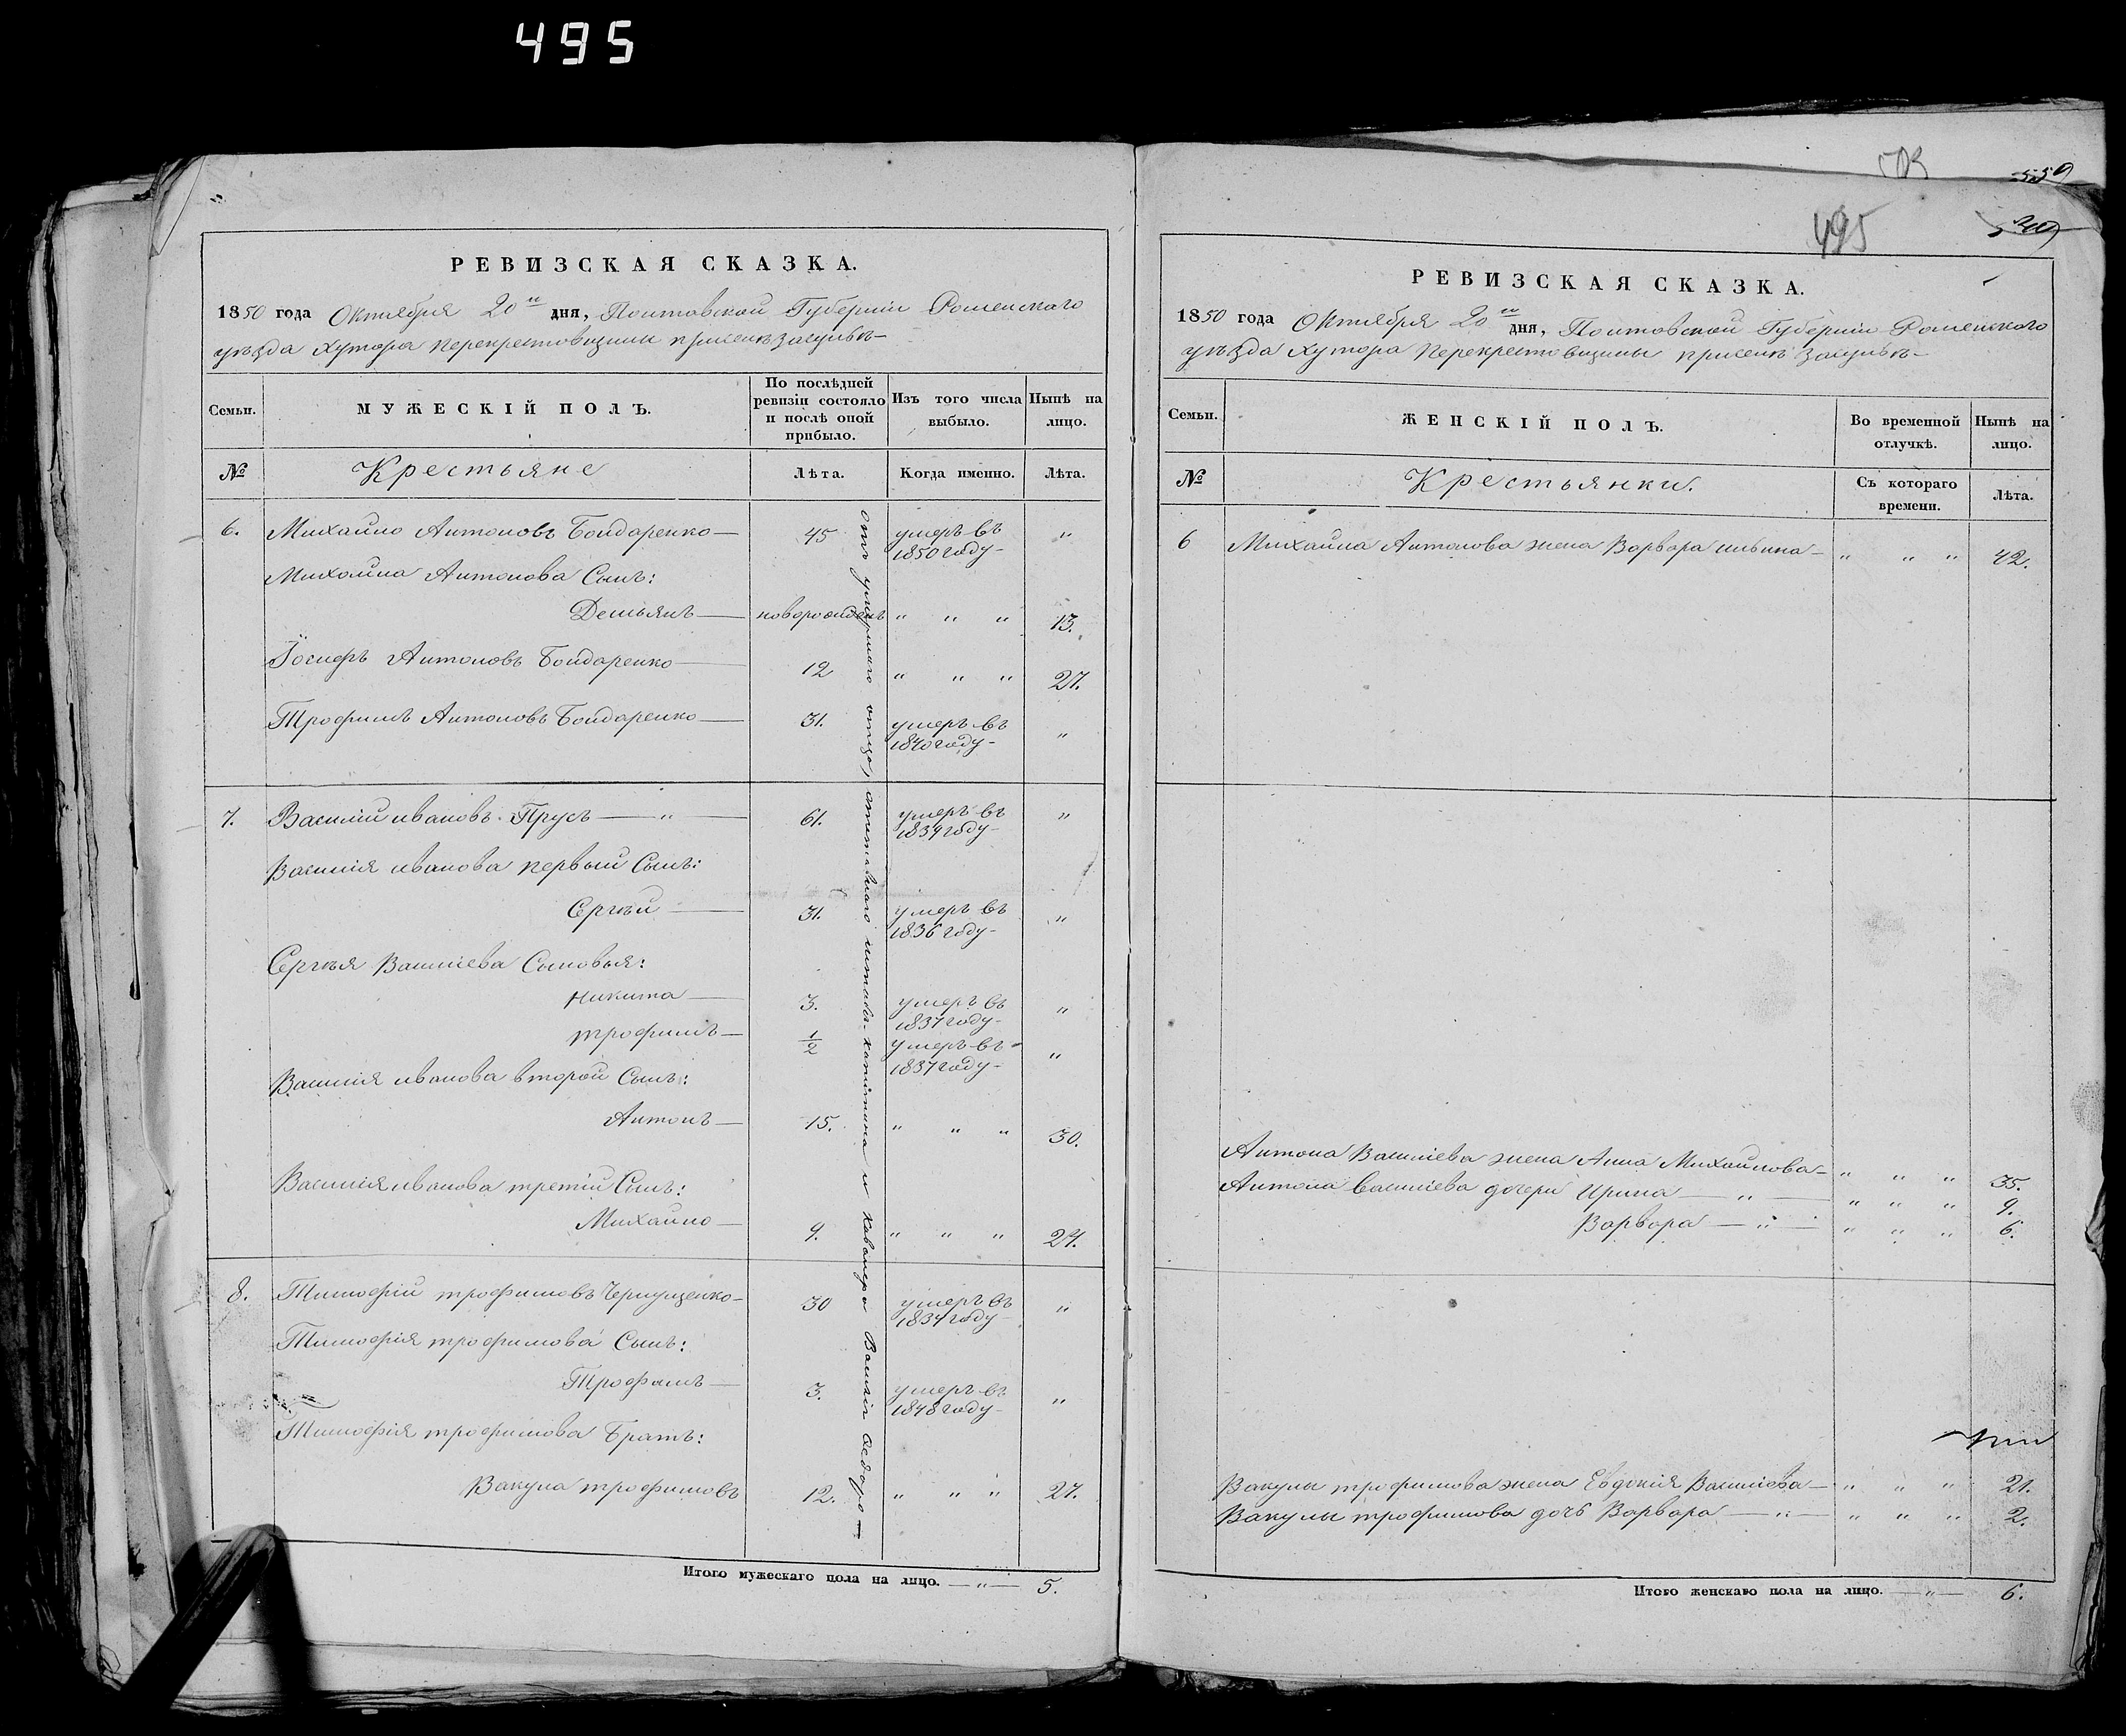 495
РЕВИЗСКАЯ СКАЗКА.
1850 года Октября 20го дня, Полтавской Губернии Роменскаго
уѣзда Хутора Перекрестовщины присенѣ Засульѣ
Семьи.
МУЖЕСКІЙ ПОЛЪ.
По послѣдней ревизіи состояло и послѣ оной прибыло.
Изъ того числа выбыло.
Нынѣ на лицо.
№
Крестьяне
Лѣта.
Когда именно.
Лѣта.
6. Михайло Антоновъ Бондаренко — 45 умеръ въ 1850 году - "
Михайла Антонова Сынъ:
Демьянъ — новорожденъ " " " 13.
Іосифъ Антоновъ Бондаренко — 12 " " " 27.
Трофимъ Антоновъ Бондаренко — 31. умеръ въ 1840 году - "
7. Василій Ивановъ Прусъ — " — 61. умеръ въ 1839 году - "
Василія иванова первый Сынъ:
Сергѣй — 31. умеръ въ 1836 году - "
Сергѣя Василіева Сыновья:
никита — 3. умеръ въ 1837 году - "
трофимъ — 1/2 умеръ въ 1837 году - "
Василія иванова второй Сынъ:
Антонъ — 15. " " " 30.
Василія иванова третій Сынъ:
Михайло — 9. " " " 24.
8. Тимофій трофимовъ Чернущенко - 30 умеръ въ 1834 году - "
Тимофія трофимова Сынъ:
Трофимъ — 3. умеръ въ 1848 году - "
Тимофія трофимова Братъ:
Вакула трофимовъ 12. " " " 27.
отъ умершаго отца, отставнаго штабъ-капитана и кавалера Василія Федоро—
Итого мужескаго пола на лицо. — " — 5.
495
РЕВИЗСКАЯ СКАЗКА.
1850 года Октября 20го дня, Полтавской Губерніи Роменскаго
уѣзда Хутора Перекрестовщины присенѣ Засульѣ
Семьи.
ЖЕНСКІЙ ПОЛЪ.
Во временной отлучкѣ.
Нынѣ на лицо.
№
Крестьянки.
Съ котораго времени.
Лѣта.
6 Михайла Антонова жена Варвара ильина - " " " 42.
Антона Василіева жена Анна Михайлова - " " " 35.
Антона Василіева дочери Ирина — " — " " " 9.
Варвара — " — " " " 6.
Вакулы трофимова жена Евдокія Василіева — " " " 21.
Вакулы трофимова дочь Варвара — " — " " " 2.
Итого женскаго пола на лицо. — " — 6.